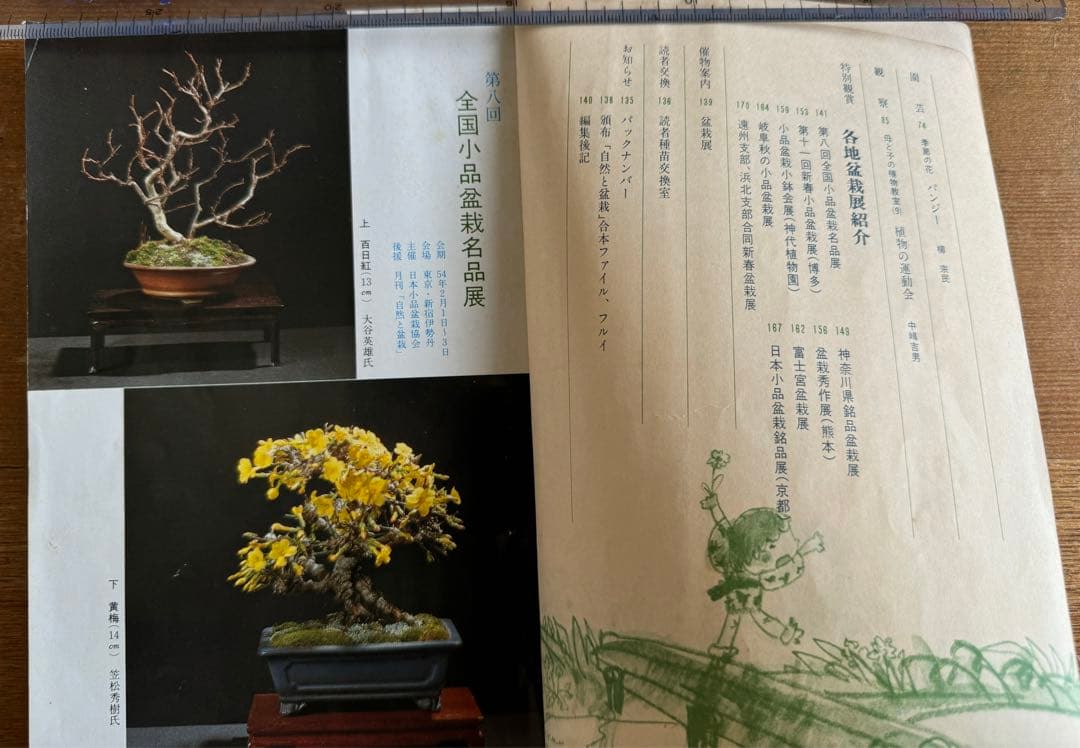 園芸 74 季節の花 パンジー 柳宗民
観察 85 母と子の植物教室(9) 植物の運動会 中嶋吉男
特別観賞 各地盆栽展紹介
141 第八回全国小品盆栽名品展
149 神奈川県銘品盆栽展
153 第十一回新春小品盆栽展(博多)
156 盆栽秀作展(熊本)
159 小品盆栽小鉢会展(神代植物園)
162 富士宮盆栽展
164 岐阜秋の小品盆栽展
167 日本小品盆栽銘品展(京都)
170 遠州支部、浜北支部合同新春盆栽展
催物案内 139 盆栽展
読者交換 136 読者種苗交換室
お知らせ 135 バックナンバー
138 頒布「自然と盆栽」合本ファイル、フルイ
140 編集後記
第八回
全国小品盆栽名品展
会期 54年2月1日~3日
会場 東京・新宿伊勢丹
主催 日本小品盆栽協会
後援 月刊「自然と盆栽」
上 百日紅(13cm) 大谷英雄氏
下 黄梅(14cm) 笠松秀樹氏